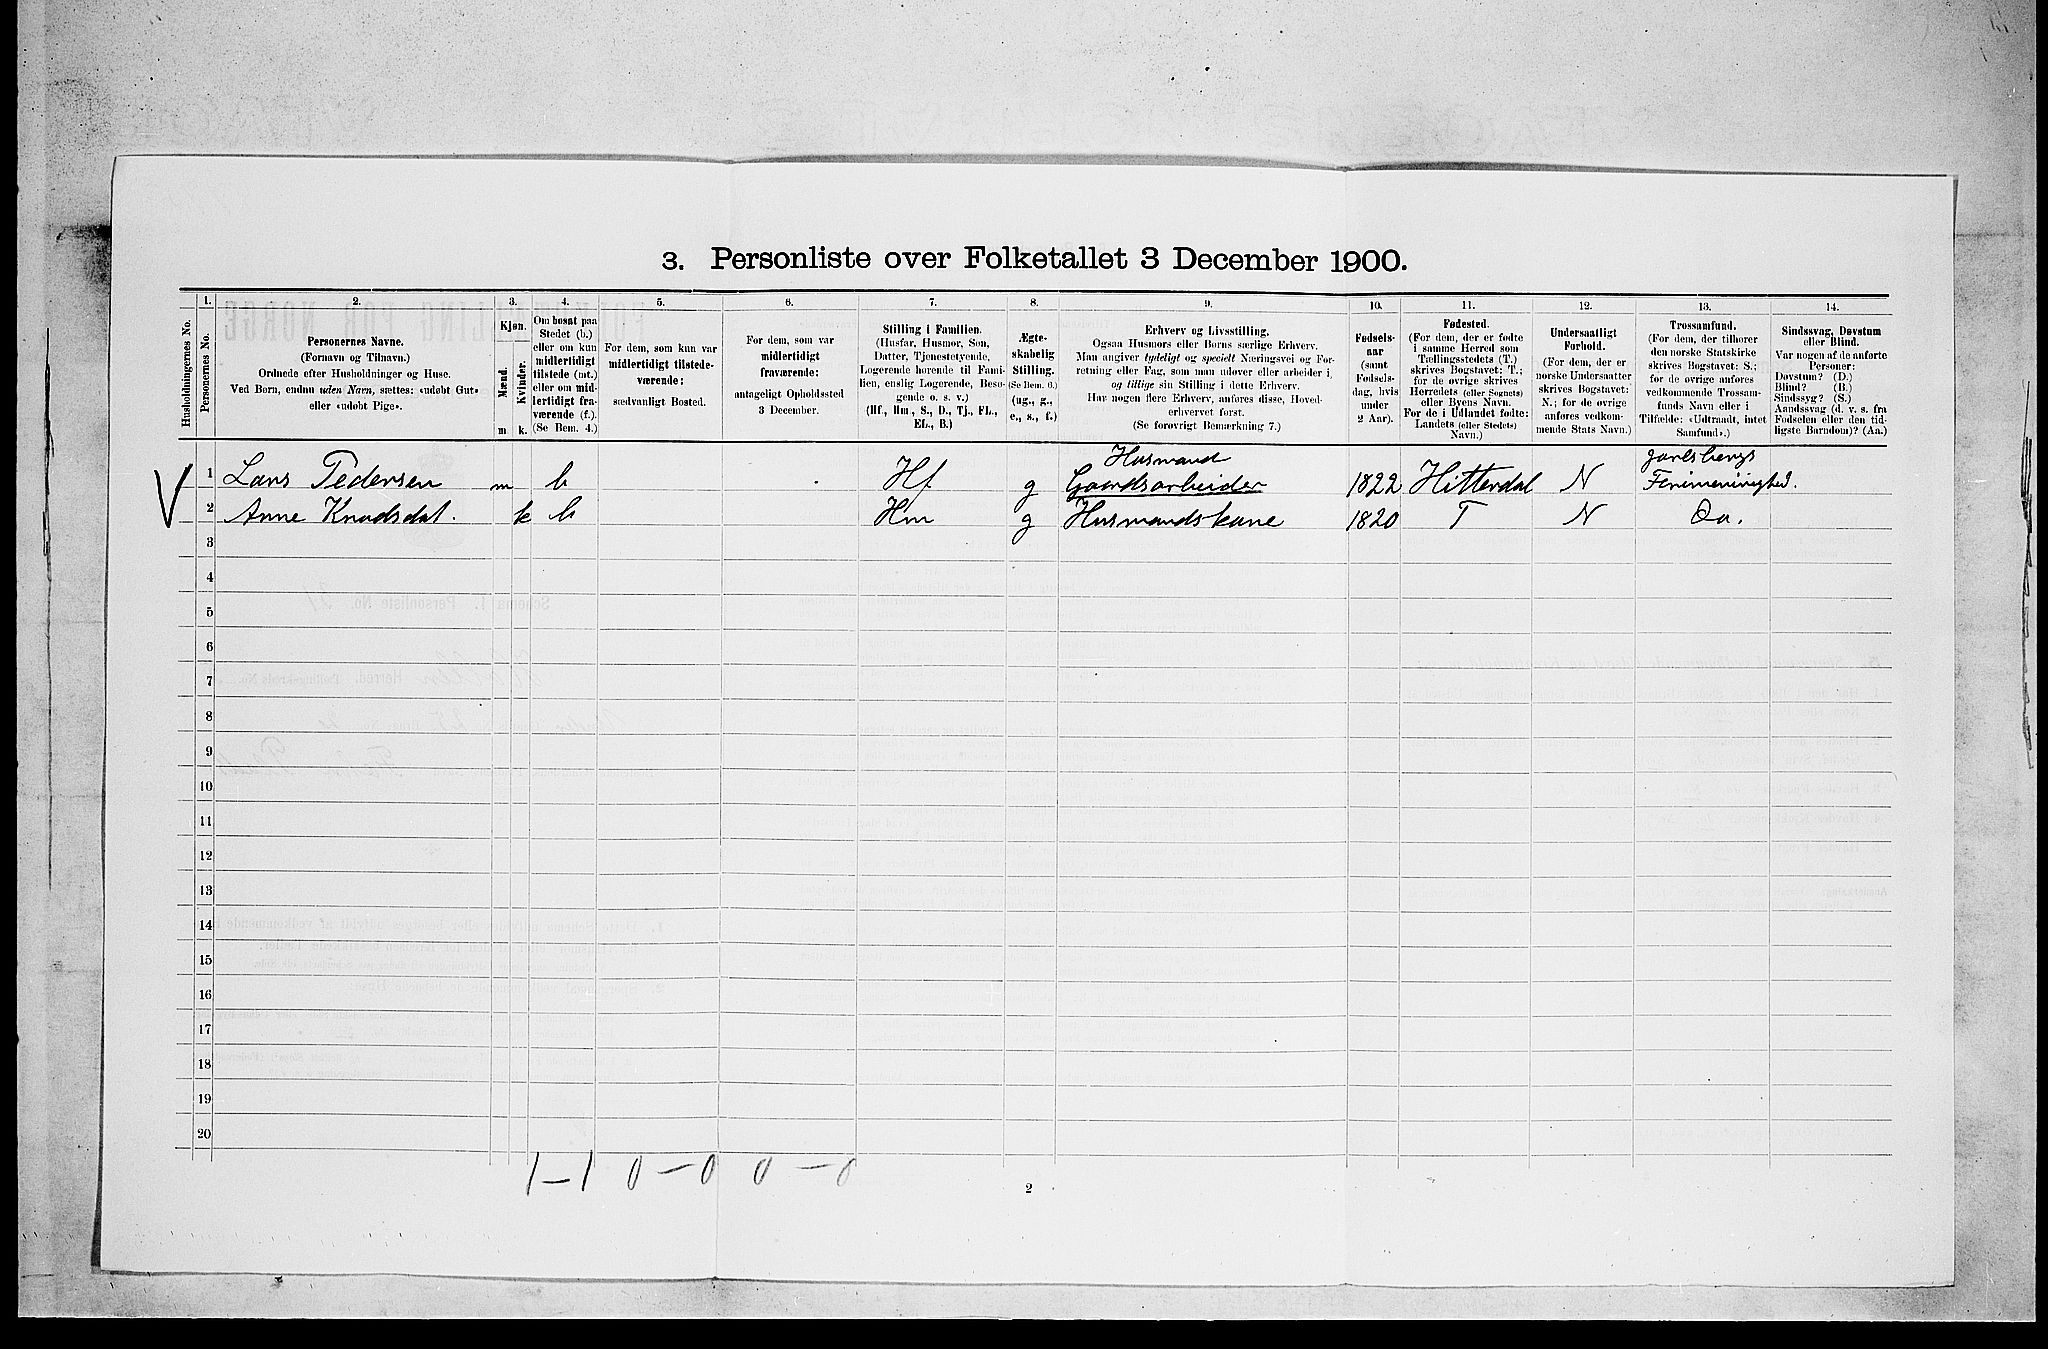 3. Personliste over Folketallet 3 December 1900.
Husholdningernes No.
1.
Personernes No.
2.
Personernes Navne.
(Fornavn og Tilnavn.)
Ordnede efter Husholdninger og Huse.
Ved Børn, endnu uden Navn, sættes: «udøbt Gut»
eller «udøbt Pige».
3.
Kjøn.
Mænd.
Kvinder.
m
k.
4.
Om bosat paa
Stedet (b.)
eller om kun
midlertidigt
tilstede (mt.)
eller om mid-
lertidigt fra-
værende (f.).
(Se Bem. 4.)
5.
For dem, som kun var
midlertidigt tilstede-
værende:
sædvanligt Bosted.
6.
For dem, som var
midlertidigt
fraværende:
antageligt Opholdssted
3 December.
7.
Stilling i Familien.
(Husfar, Husmor, Søn,
Datter, Tjenestetyende,
Logerende hørende til Fami-
lien, enslig Logerende, Besø-
gende o. s. v.)
(Hf., Hm., S., D., Tj., FL.,
EL., B.)
8.
Ægte-
skabelig
Stilling.
(Se Bem. 6.)
(ug., g.,
e., s., f.)
9.
Erhverv og Livsstilling.
Ogsaa Husmors eller Børns særlige Erhverv.
Man angiver tydeligt og specielt Næringsvei og For-
retning eller Fag, som man udøver eller arbeider i,
og tillige sin Stilling i dette Erhverv.
Har nogen flere Erhverv, anføres disse, Hoved-
erhvervet først.
(Se forøvrigt Bemærkning 7.)
10.
Fødsels-
aar
(samt
Fødsels-
dag, hvis
under
2 Aar).
11.
Fødested.
(For dem, der er fødte
i samme Herred som
Tællingsstedets (T.)
skrives Bogstavet: T.;
for de øvrige skrives
Herredets (eller Sognets)
eller Byens Navn.
For de i Udlandet fødte:
Landets (eller Stedets)
Navn.)
12.
Undersaatligt
Forhold.
(For dem, der er
norske Undersaatter
skrives Bogstavet:
N.; for de øvrige
anføres vedkom-
mende Stats Navn.)
13.
Trossamfund.
(For dem, der tilhører
den norske Statskirke
skrives Bogstavet: S.;
for de øvrige anføres
vedkommende Trossam-
funds Navn eller i
Tilfælde: «Udtraadt, intet
Samfund».)
14.
Sindssvag, Døvstum
eller Blind.
Var nogen af de anførte
Personer:
Døvstum? (D.)
Blind? (B.)
Sindssyg? (S.)
Aandssvag (d. v. s. fra
Fødselen eller den tid-
ligste Barndom)? (Aa.)
V
1 Lars Pedersen m b Hf g Husmand Gaardsarbeider 1822 Hitterdal N Jarlsbergs Frimenighed.
2 Anne Knudsdat. k b Hm g Husmandskone 1820 T N Do.
3
4
5
6
7
8
9
10
11
12
13
14
15
16
17
18
19
20
1–1 0–0 0–0
2